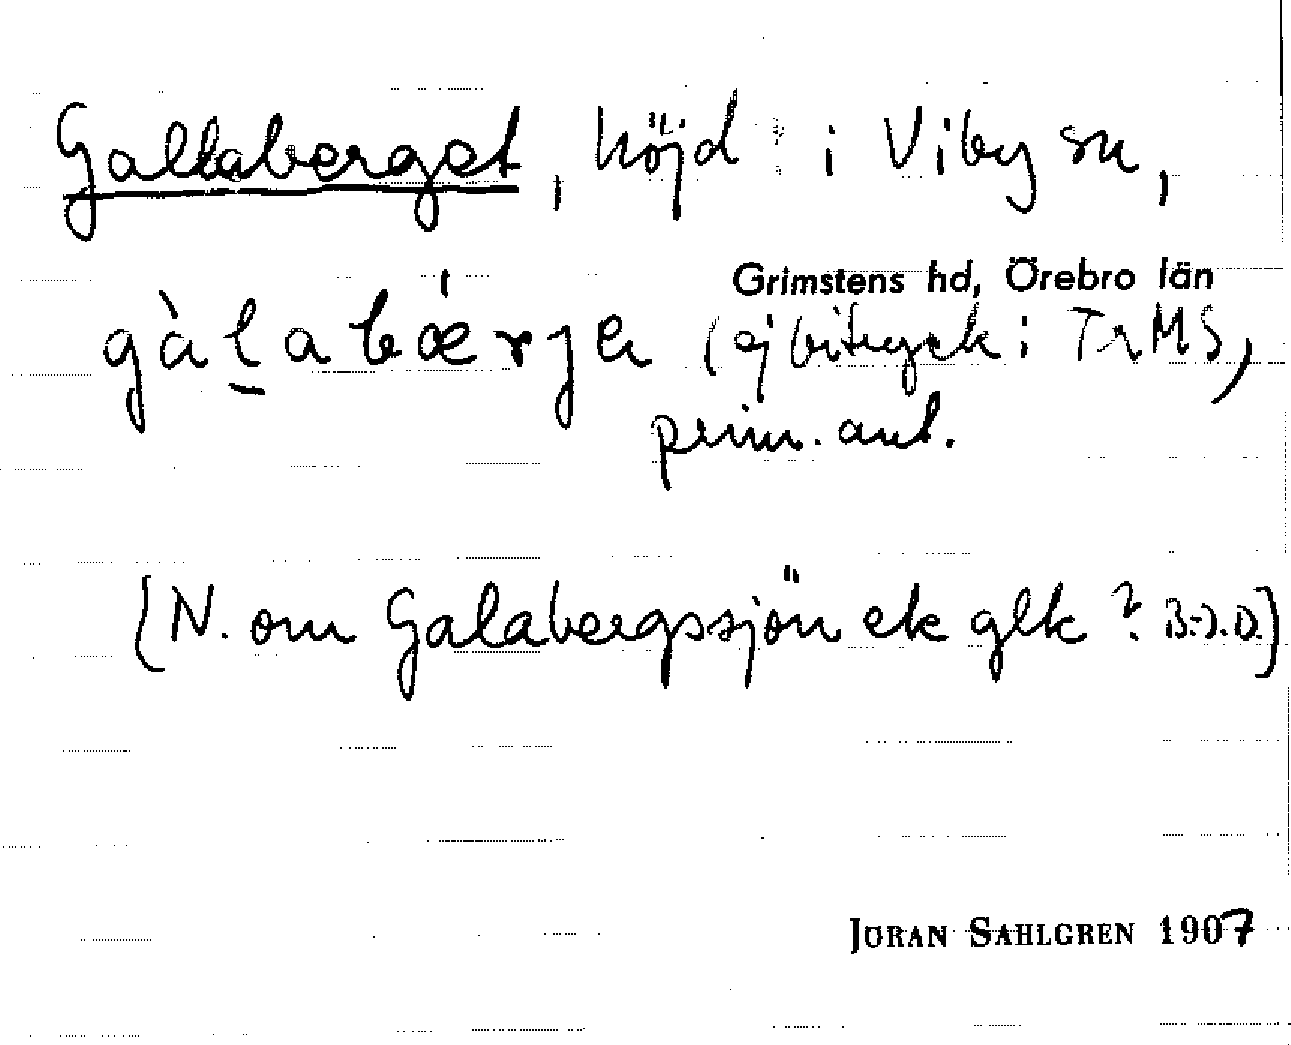 Gallaberget, höjd i Viby sn,
Grimstens hd, Örebro län
gàḻabǽrjə (ej bitryck i TrMS,
prim. ant.
[N. om Galabergssjön ek glk? B-J.D.]
JÖRAN SAHLGREN 1907